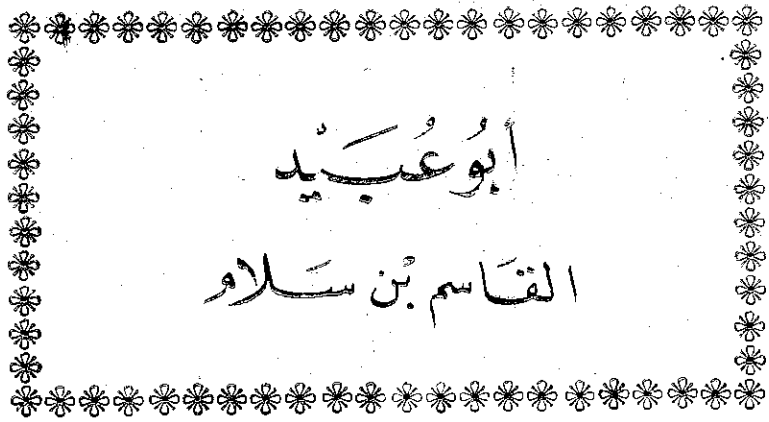 أبُو عُبَيْد
القَاسم بْن سَلام